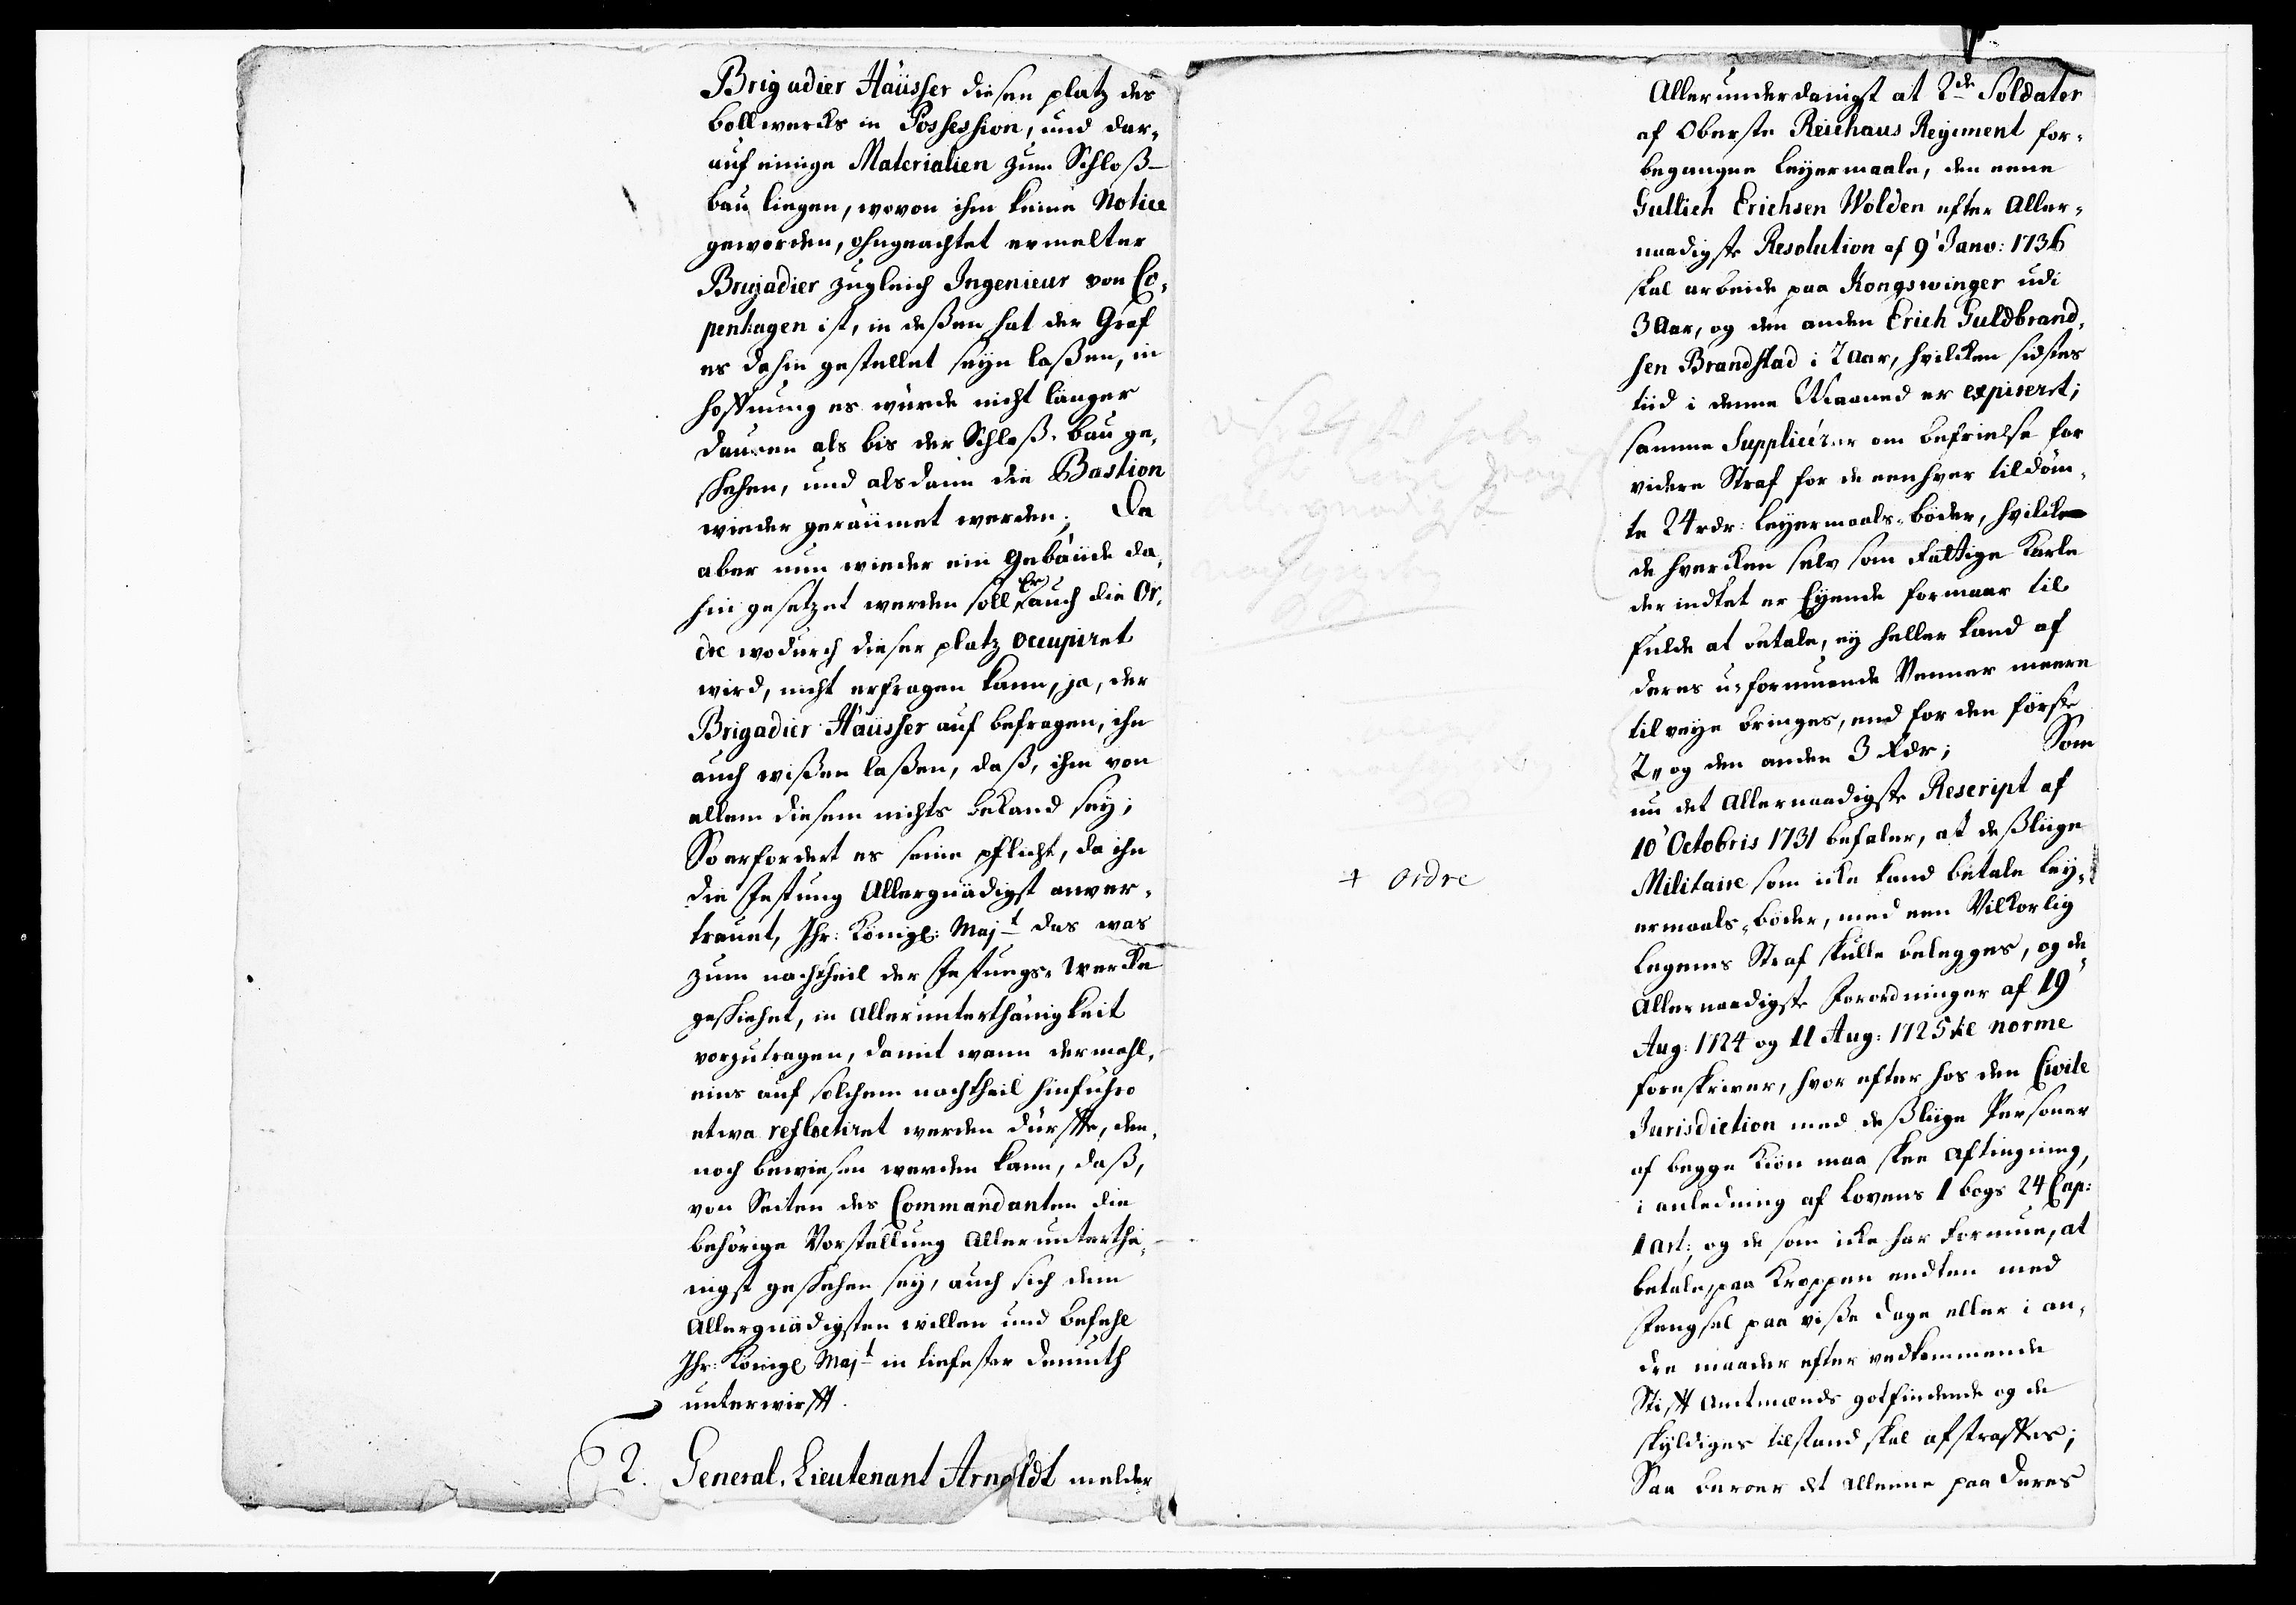 Brigadier Häüsser diesen platz des
bollwercks in Possession, und dar-
auf einige Materialien zum Schloß-
bau liegen, wovon ihm keine Notice
geworden, ohngeachtet ermelter
Brigadier zugleich Ingenieur von Co-
penhagen ist, in deßen hat der Graf
es dahin gestellet seyn laßen, in
hoffnung es würde nicht länger
dauren als bis der Schloß-bau ge-
schehen, und alsdann die Bastion
wieder geräumet werden; Da
aber nun wieder ein Gebäude da-
hin gesetzet werden soll Er auch die Or-
dre wodurch dieser platz occupiret
wird, nicht erfragen kann, ja, der
Brigadier Häüsser auf befragen, ihn
auch wißen laßen, daß, ihm von
allem diesem nichts bekand sey;
So erfordert es seine pflicht, da ihm
die Festung Allergnädigst anver-
trauet, Ihr: Königl: Majt das was
zum nachtheil der Festungs-Wercke
geschiehet, in Allerunterthänigkeit
vorzutragen, damit wann dermahl-
eins auf solchem nachtheil hinführo
etwa reflectiret werden dürffte, den-
noch bewiesen werden kann, daß,
von Seiten des Commandanten die
behörige Vorstellung Allerunterthä-
nigst geschehen sey, auch sich dem
Allergnädigsten willen und befehl
Ihr: Königl Majt in tiefester demuth
unterwirfft.
2. General-Lieutenant Arnoldt melder
Allerunderdanigst at 2de Soldater
af Oberste Reichaus Regiment for-
begangne Leyermaale, den eene
Gullich Erichsen Wolden efter Aller-
naadigste Resolution af 9' Janv: 1736
skal arbeide paa Kongswinger udi
3 Aar, og den anden Erich Guldbrand-
sen Brandstad i 2 Aar, hvilcken sidstes
tiid i denne Maaned er expireret;
samme Supplicerer om befrielse for
videre Straf for de eenhver tildöm-
te 24 rdr: Leyermaals-böder, hvilcke
de hvercken selv som fattige Karle
der indtet er Eyende formaar til
fulde at betale, ey heller kand af
deres u-formuende Venner meere
tilveye bringes, end for den förste
2, og den anden 3 Rdr; Som
nu det Allernaadigste Rescript af
10' Octobris 1731 befaler, at deßliige
Militaire som icke kand betale Ley-
ermaals-böder, med een Vilkorlig
Legems Straf skulle belegges, og de
Allernaadigste Forordninger af 19'
Aug: 1724 og 11 Aug: 1725 de norme
foreskriver, hvor efter hos den Civile
Jurisdiction med deßliige Personer
af begge Kiön maa skee Aftingning,
i anledning af Lovens 1 bogs 24 Cap:
1 art:, og de som icke har formue, at
betale, paa Kroppen endten med
Fengsel paa viße dage eller i an-
dre maader efter vedkommende
Stifft Amtmands gotfindende og de
skyldiges tilstand skal afstraffes;
Saa beroer det alleene paa Deres
+ ordre